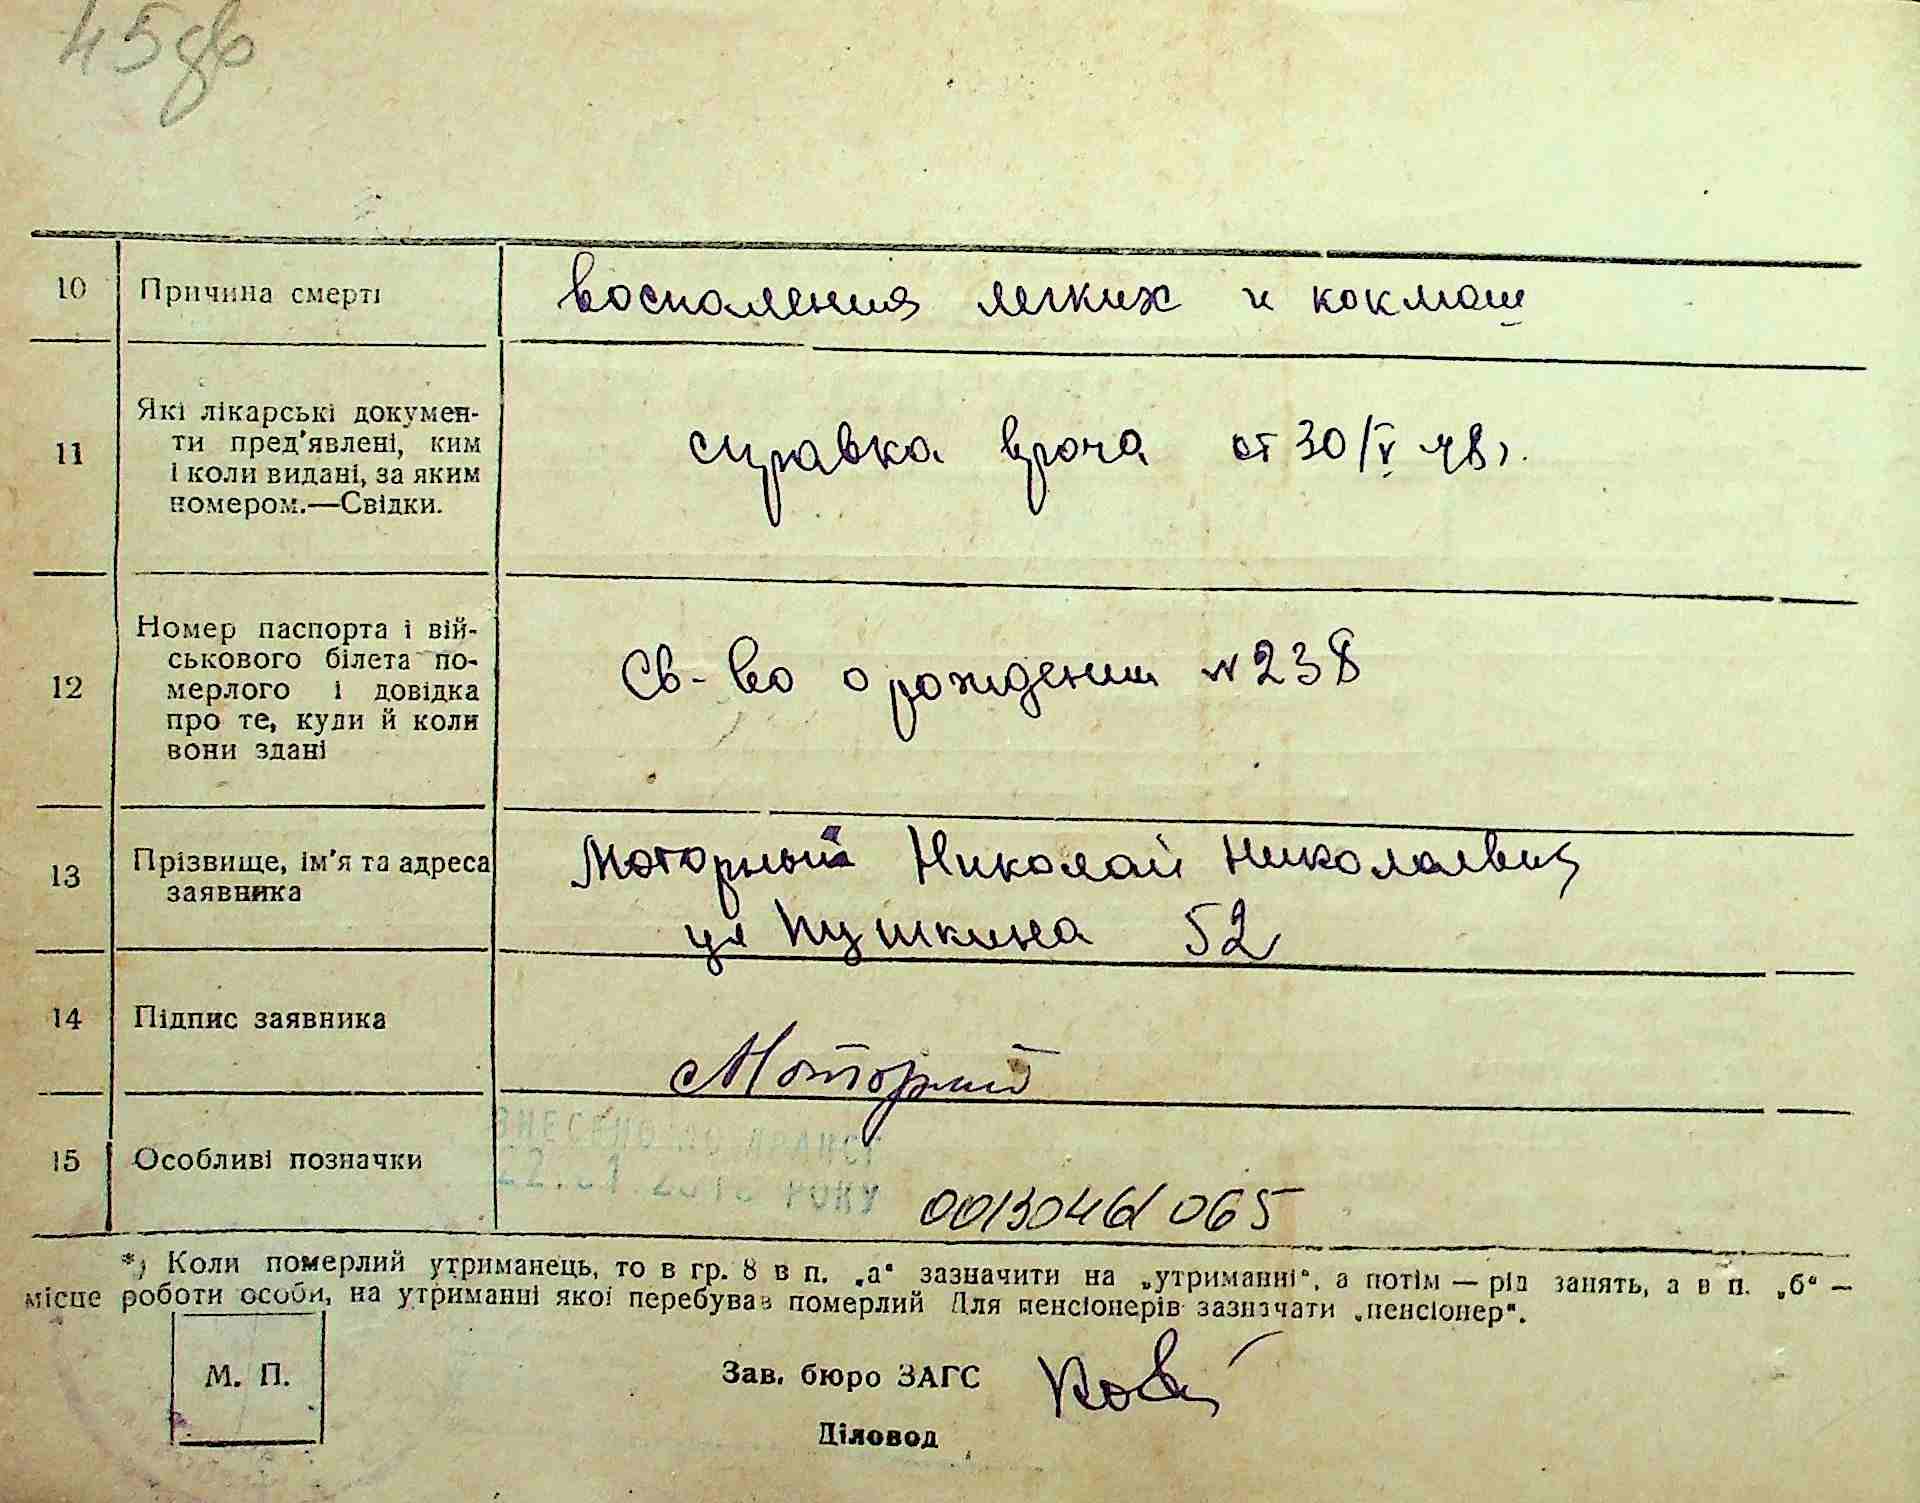 45
10 Причина смерті воспаления легких и коклюш
11 Які лікарські докумен-
ти пред'явлені, ким
і коли видані, за яким
номером.—Свідки.
справка врача от 30/V 48 г.
12 Номер паспорта і вій-
ськового білета по-
мерлого і довідка
про те, куди й коли
вони здані
Св-во о рождении N 238
13 Прізвище, ім'я та адреса
заявника
Моторный Николай Николаевич
ул Пушкина 52
14 Підпис заявника
Моторный
15 Особливі позначки
ВНЕСЕНО ДО ДРАЦСГ
РОКУ
00130461065
*) Коли померлий утриманець, то в гр. 8 в п. „а“ зазначити на „утриманні“, а потім — рід занять, а в п. „б“ —
місце роботи особи, на утриманні якої перебував померлий Для пенсіонерів зазначати „пенсіонер“.
М. П.
Зав. бюро ЗАГС
Діловод